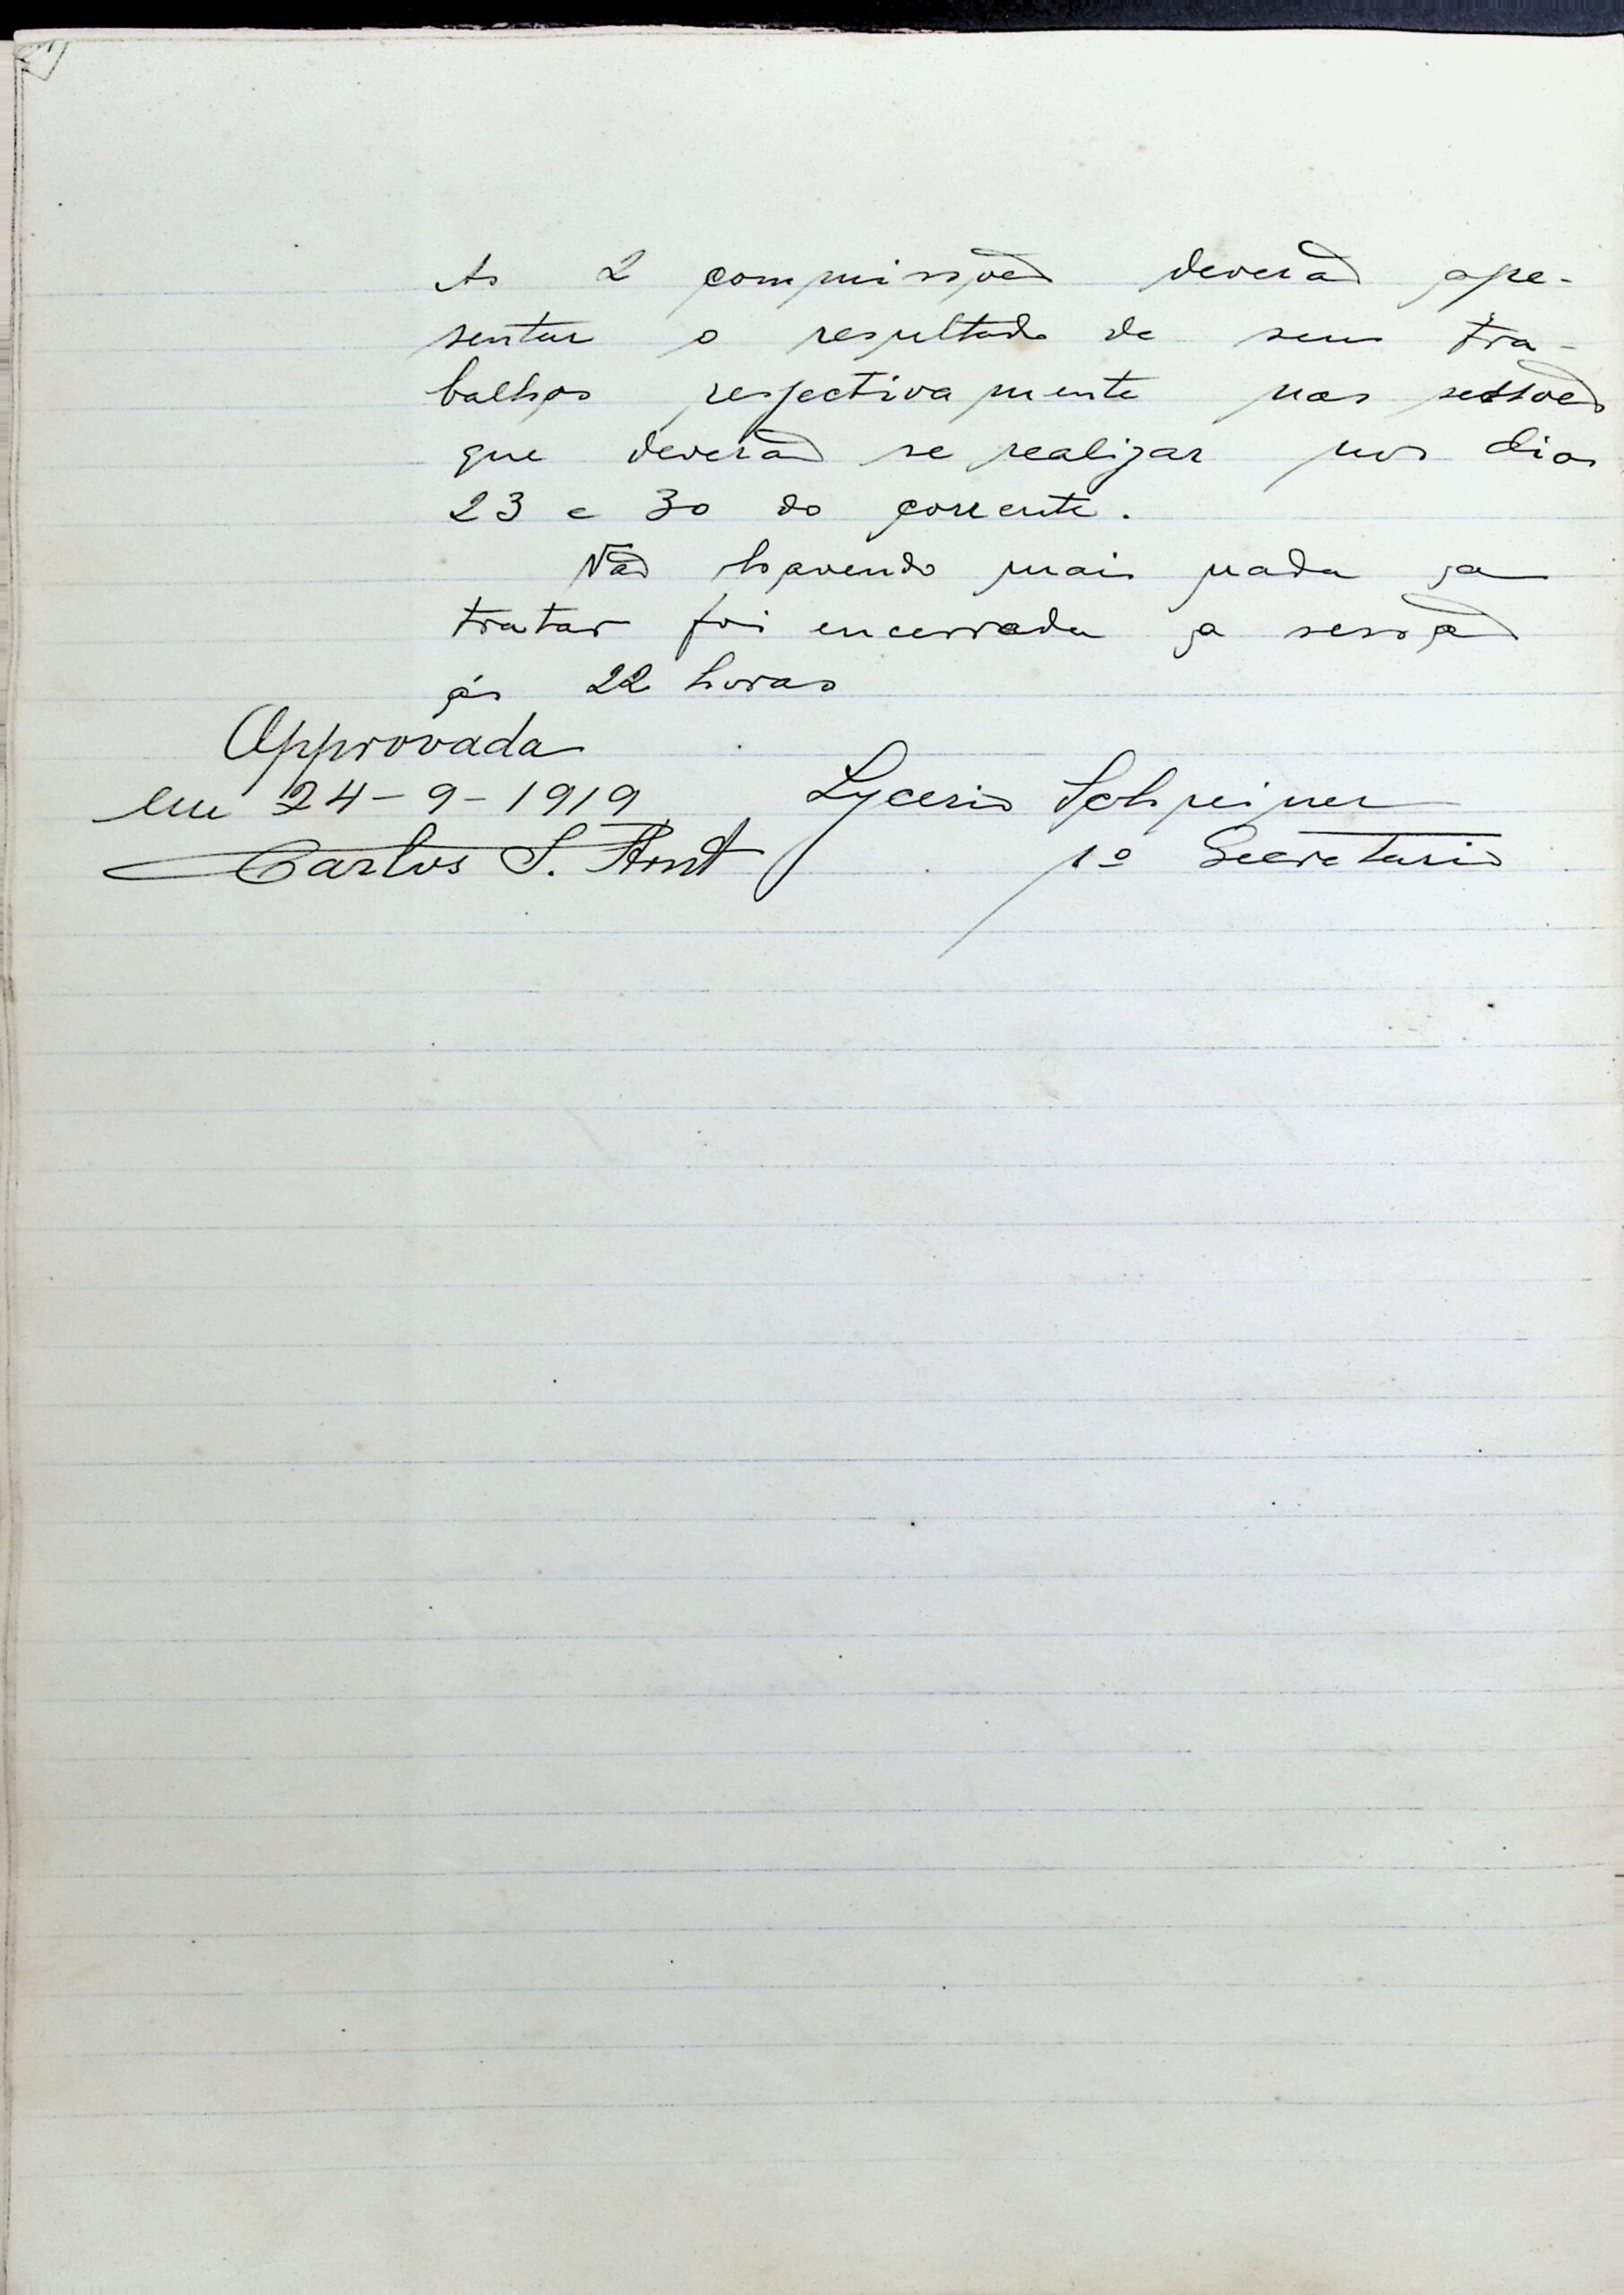 As 2 commissões deverão apre-
sentar o resultado de seus tra-
balhos respectivamente nas sessões
que deverão se realizar nos dias
23 e 30 do corrente.
Não havendo mais nada a
tratar foi encerrada a sessão
ás 22 horas
Approvada
em 24-9-1919
Lycerio Schreiner
Carlos S. Arnt
1º Secretario